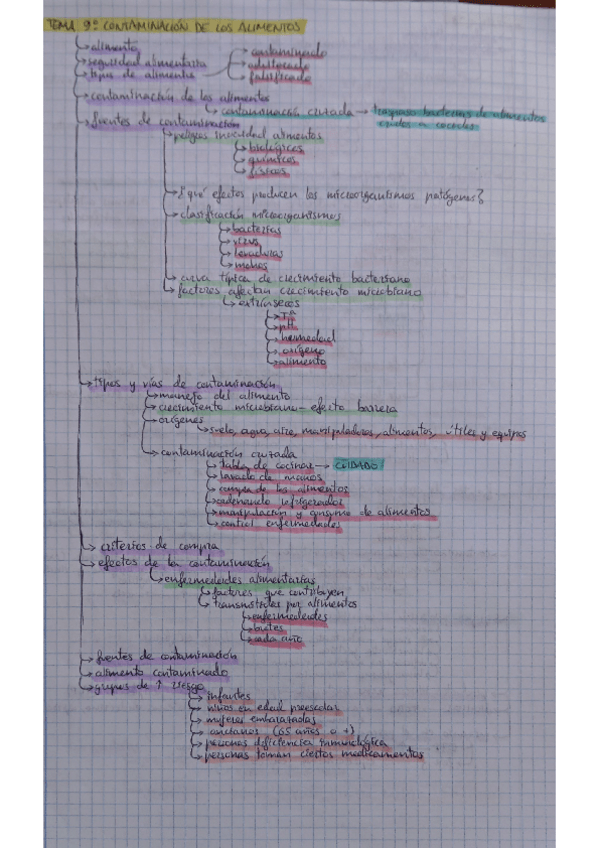 TEMA 9: CONTAMINACIÓN DE LOS ALIMENTOS
alimento
seguridad alimentaria
tipos de alimento
contaminado
adulterado
falsificado
contaminación de los alimentos
contaminación cruzada → traspaso bacterias de alimentos crudos a cocidos
fuentes de contaminación
peligros inocuidad alimentos
biológicos
químicos
físicos
¿qué efectos producen los microorganismos patógenos?
clasificación microorganismos
bacterias
virus
levaduras
mohos
curva típica de crecimiento bacteriano
factores afectan crecimiento microbiano
extrínsecos
Tª
pH
humedad
oxígeno
alimento
tipos y vías de contaminación
manejo del alimento
crecimiento microbiano - efecto barrera
orígenes
suelo, agua, aire, manipuladores, alimentos, útiles y equipos
contaminación cruzada
tabla de cocinar → CUIDADO!
lavado de manos
compra de los alimentos
ordenando refrigerador
manipulación y consumo de alimentos
control enfermedades
criterios de compra
efectos de la contaminación
enfermedades alimentarias
factores que contribuyen
transmitidas por alimentos
enfermedades
brotes
cada año
fuentes de contaminación
alimento contaminado
grupos de ↑ riesgo
infantes
niños en edad preescolar
mujeres embarazadas
ancianos (65 años o +)
personas deficiencia inmunológica
personas toman ciertos medicamentos